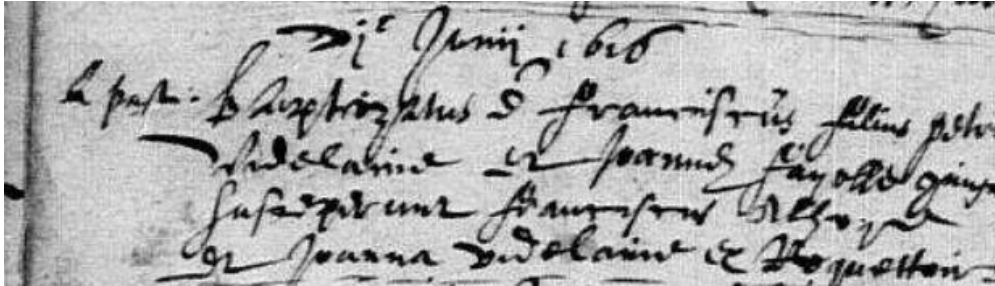 Junij 1616
Baptizatus e Franciscus filius petri
videlaine et Joannæ fayolle
susceperunt Franciscus
et Joanna videlaine ex